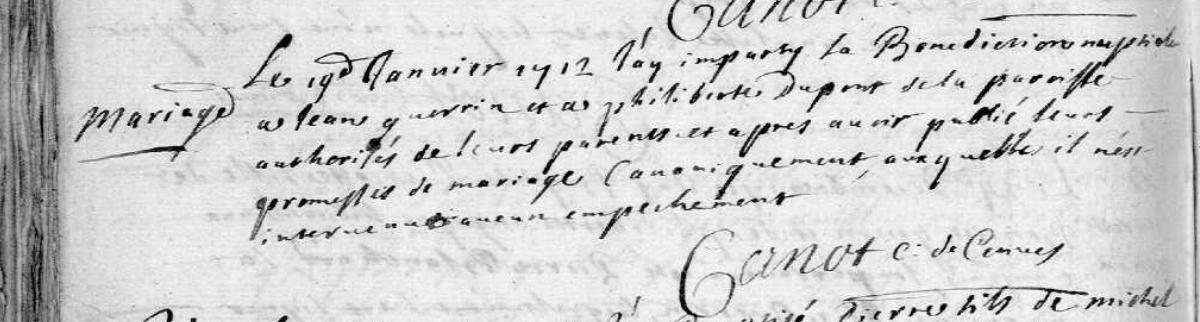 Canot c.
Mariage
Le 19e Janvier 1712 J'ay imparty la Benediction nuptiale
a Jean guerrin et a philiberte Dupont de la paroisse
authorités de leurs parents et apres avoir publié leurs
promesses de mariage Canoniquement auxquelles il n'est
intervenu aucun empechement
Canot c. de Cenves
Pierre fils de michel